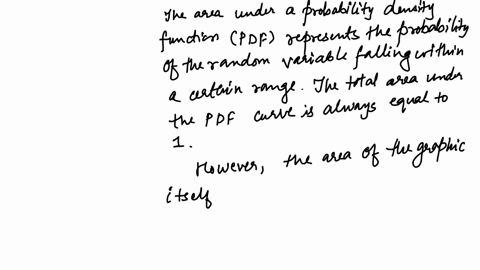 The area under a probability density
function (PDF) represents the probability
of the random variable falling within
a certain range. The total area under
the PDF curve is always equal to
1.
However, the area of the graphic
itself